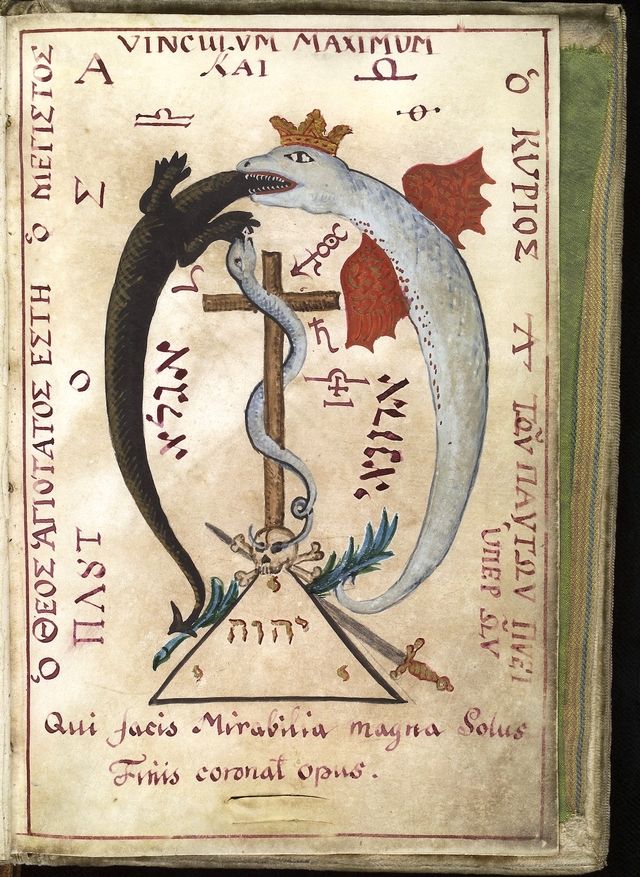 VINCULVM MAXIMUM
A KAI
Ὁ ΘΕΟΣ ἉΓΙΟΤΑΤΟΣ ΕΣΤΗ Ὁ ΜΕΓΙΣΤΟΣ
Ὁ ΚΥΡΙΟΣ
ΤΩΝ ΠΑΝΤΩΝ
ὙΠΕΡ ΩΝ
אגלא
יהוה
Qui facis Mirabilia magna Solus
Finis coronat opus.